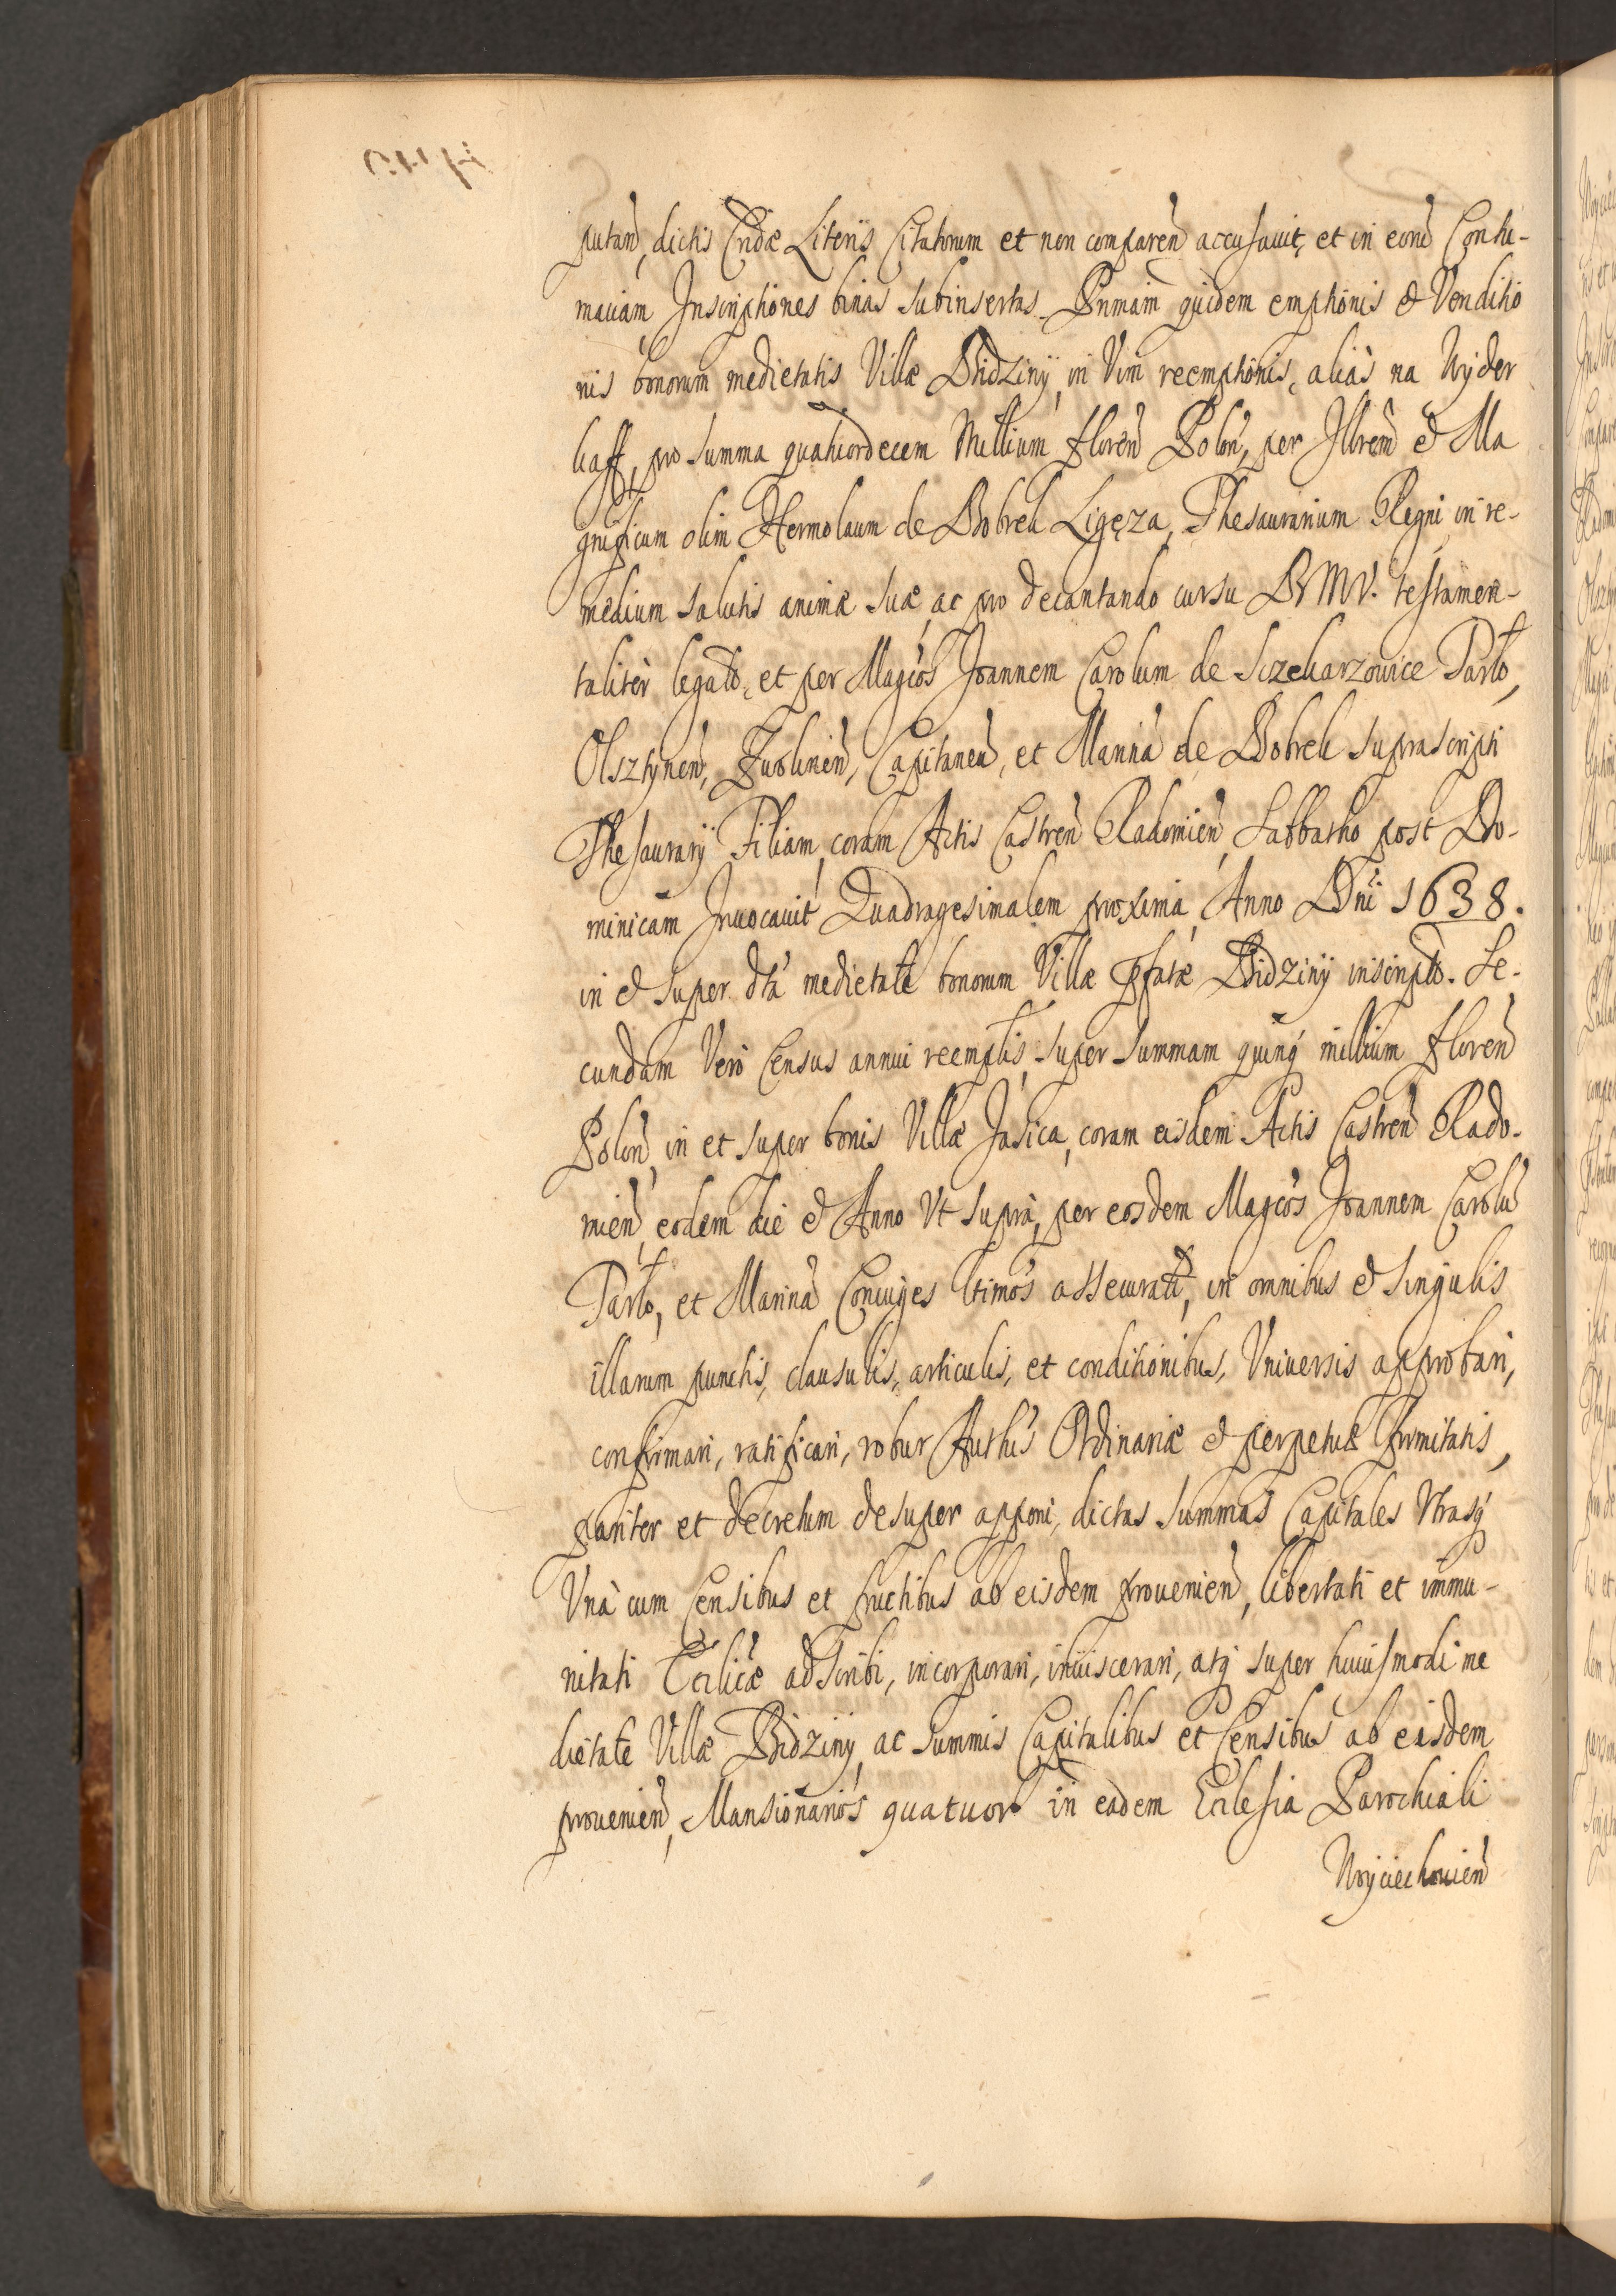 putan̄, dictis Eisdē Literis Citatorum et non comparen̄ accusavit, et in eorū Contu-
maciam Inscriptiones binas subinsertas. Primam quidem emptionis & Venditio
nis bonorum medietatis Villæ Bidziny, in Vim reemptionis, aliàs na Wyder
kaff, pro summa quatuordecem Millium floren̄ Polon̄, per Illrem̄ & Ma
gnificum olim Hermolaum de Bobrek Ligęza, Thesaurarium Regni in re-
medium salutis animæ suæ, ac pro decantando cursu BMV. testamen-
taliter legato, et per Magcos Joannem Carolum de Sczekarzowice Tarło,
Olsztynen̄, Zwolinen̄, Capitaneū, et Mariná de Bobrek suprascripti
Thesaurarij Filiam, coram Actis Castren̄ Radomien̄, Sabbatho post Do-
minicam Invocavit Quadragesimalem proxima, Anno Dnī 1638.
in & super dtā medietate bonorum Villæ pfatæ Bidziny inscripto. Se-
cundam Vero Census annui reemptis, super summam quinq millium floren̄
Polon̄, in et super bonis Villæ Jasica, coram eisdem Actis Castren̄ Rado-
mien̄, eodem die & Anno Vt supra, per eosdem Magcos Joannem Carolū
Tarło, et Marinā Coniuges ltimos assecurati, in omnibus & singulis
illarum punctis, clausulis, articulis, et conditionibus, Vniuersis approbari,
confirmari, ratificari, robur Authis Ordinariæ & perpetuæ firmitatis,
pariter et decretum desuper apponi, dictas summas Capitales Vtrasq
Vnà cum Censibus et fructibus ab eisdem prouenien̄, libertati et immu-
nitati Eccliċæ adscribi, incorporari, inuiscerari, atq super huiusmodi me
dietate Villæ Bidziny, ac summis Capitalibus et Censibus ab eisdem
prouenien̄, Mansionarios quatuor in eadem Ecclesia Parochiali
Woyciechouien̄